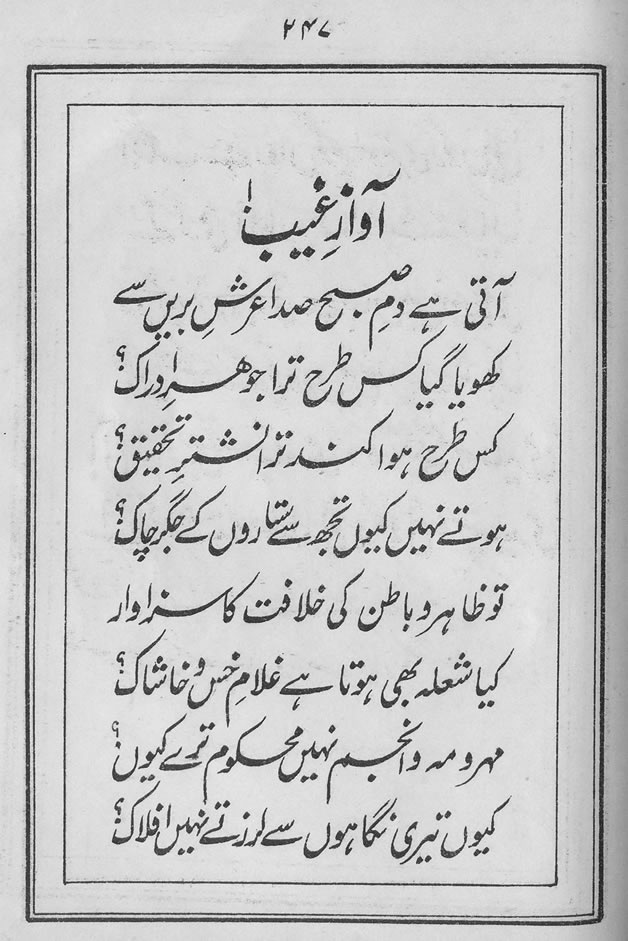 ۲۴۷
آوازِ غیب!
آتی ہے دمِ صبح صدا عرشِ بریں سے
کھویا گیا کس طرح ترا جوہرِ ادراک؟
کس طرح ہوا کند ترا نشترِ تحقیق؟
ہوتے نہیں کیوں تجھ سے ستاروں کے جگر چاک؟
تو ظاہر و باطن کی خلافت کا سزاوار
کیا شعلہ بھی ہوتا ہے غلامِ خس و خاشاک؟
مہر و مہ و انجم نہیں محکوم ترے کیوں؟
کیوں تیری نگاہوں سے لرزتے نہیں افلاک؟